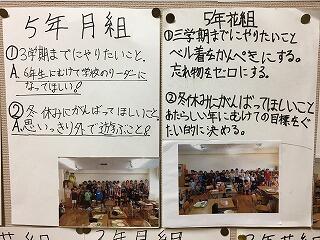 5年月組
①3学期までにやりたいこと.
A. 6年生にむけて学校のリーダーに
なってほしい!
②冬休みにがんばってほしいこと.
A. 思いっきり外で遊ぶこと!
5年花組
①三学期までにやりたいこと
ベル着をかんぺきにする。
忘れ物をゼロにする。
②冬休みにがんばってほしいこと
あたらしい年にむけての目標をぐ
たい的に決める。
2年月組